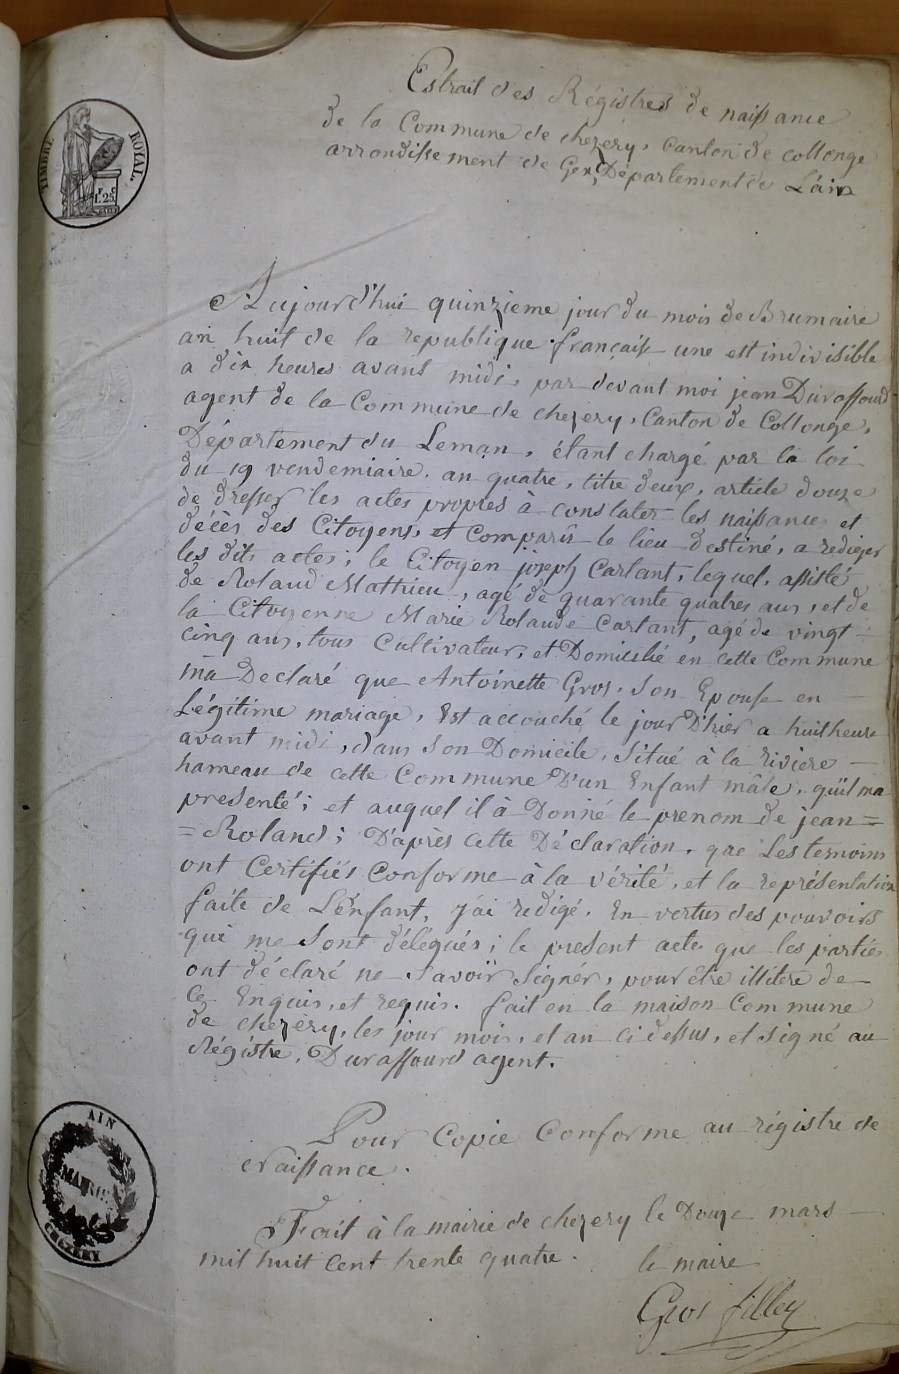 Extrait des Régistres de naissance
de la Commune de chezery, canton de collonge
arrondissement de Gex, Département de L'ain
TIMBRE ROYAL.
1f. 25c
Aujourd'hui quinzieme jour du mois de Brumaire
an huit de la republique française une et indivisible
a dix heures avant midi, par devant moi jean Duraffourd
agent de la Commune de chezery, Canton de Collonge,
Département du Leman, étant chargé par la loi
du 19 vendemiaire an quatre, titre deux, article douze
de dresser les actes propres à constater les naissances et
décès des Citoyens, et comparû le lieu destiné, a rediger
les dits actes; le Citoyen joseph Carlant, lequel, assisté
de Roland Matthieu, agé de quarante quatres ans, et de
la Citoyenne Marie Rolande Carlant, agé de vingt
cinq ans, tous Cultivateur, et Domicilié en cette Commune
ma Declaré que Antoinette Gros, Son Epouse en
Légitime mariage, Est accouché le jour D'hier a huit heure
avant midi, dans Son Domicile, Situé à la riviere
hameau de cette Commune D'un Enfant mâle, qu'il ma
presenté; et auquel il à Donné le prenom de jean=
=Roland; D'après cette Déclaration, que Les temoins
ont Certifiés Conforme à la vérité, et la représentation
faite de L'énfant, j'ai redigé, En vertus des pouvoirs
qui me Sont délégués; le present acte que les parties
ont déclaré ne Savoir Signér, pour être illitere de
Ce Enquis, et requis. fait en la maison Commune
de chezery, les jour mois, et an ci dessus, et signé au
Régistre, Duraffourd agent.
Pour Copie Conforme au régistre de
Naissance.
AIN
MAIRIE
CHEZERY
Fait à la mairie de chezery le Douze mars
mil huit cent trente quatre.
le maire
Gros filley